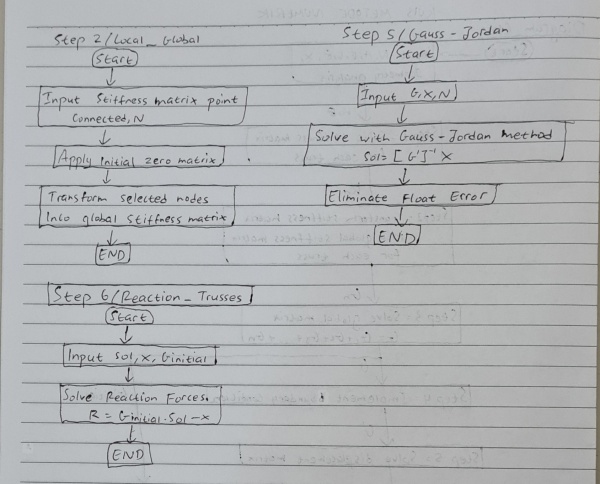 Step 2/Local_Global
Start
Input Stiffness matrix point
Connected, N
Apply initial zero matrix
Transform selected nodes
Into global stiffness matrix
END
Step 5/Gauss-Jordan
Start
Input G, X, N
Solve with Gauss-Jordan method
Sol= [G]⁻¹ X
Eliminate Float Error
END
Step 6/Reaction_Trusses
Start
Input Sol, x, Ginitial
Solve Reaction Forces.
R = Ginitial.Sol-x
END